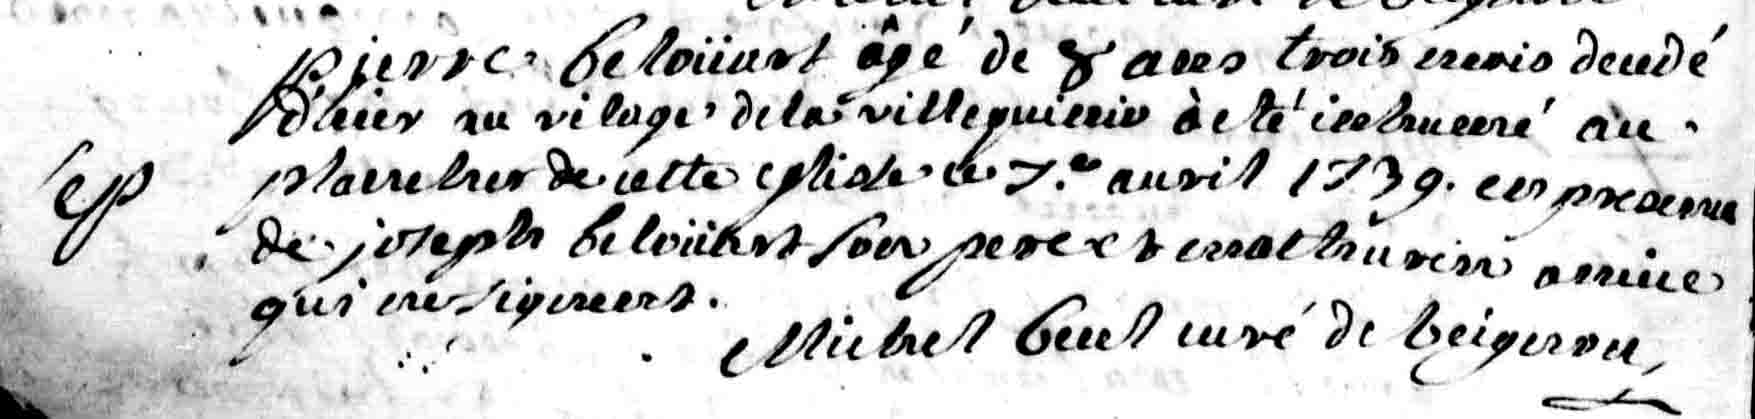 pierre belöüart âgé de 8 ans trois mois decedé
d'hier au vilage de la villeguienio à eté inhumé au
placitre de cette eglise ce 7.e auvril 1739. en presence
Sep
de joseph belöüart son pere et mathurin amice
qui ne signent.
Michel beul curé de beignon,